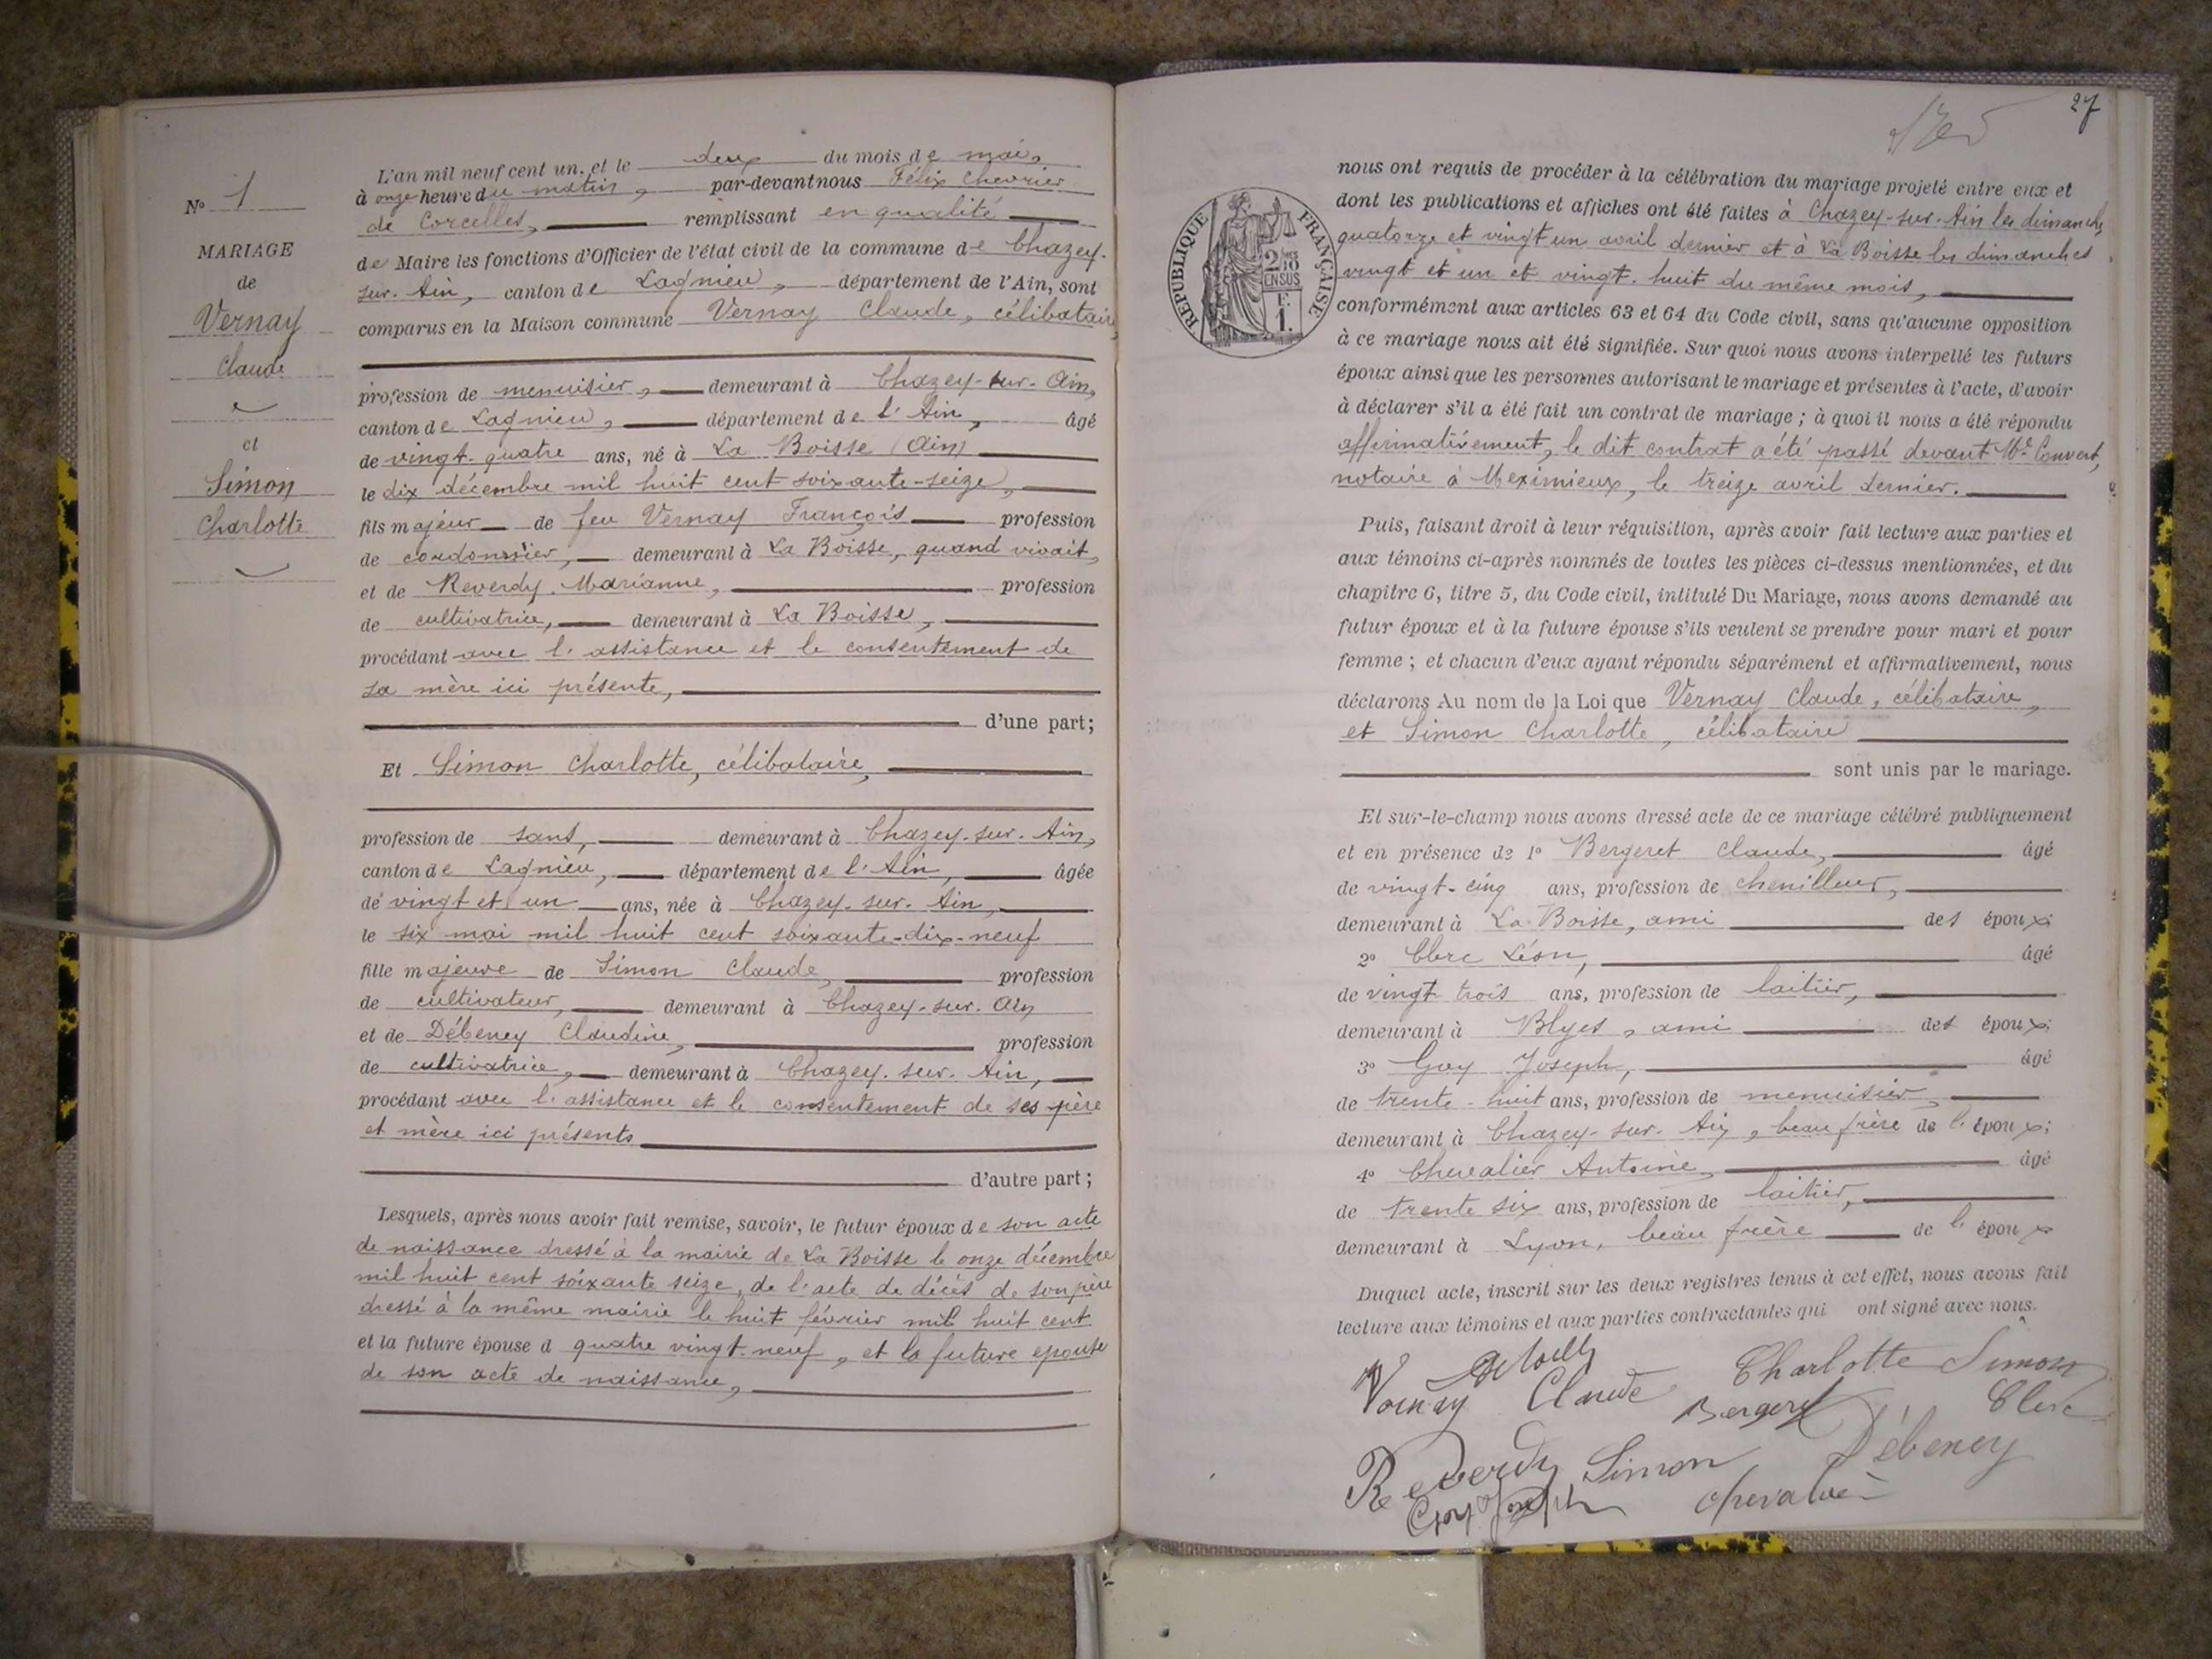 N° 1
MARIAGE
de
Vernay
Claude
et
Simon
Charlotte
L'an mil neuf cent un. et le deux du mois de mai,
à onze heure du matin, par-devant nous Félix Chevrier
de Corcelles, remplissant en qualité
de Maire les fonctions d'Officier de l'état civil de la commune de Chazey-
sur-Ain, canton de Lagnieu, département de l'Ain, sont
comparus en la Maison commune Vernay Claude, célibataire,
profession de menuisier, demeurant à Chazey-sur-Ain,
canton de Lagnieu, département de l'Ain, âgé
de vingt-quatre ans, né à La Boisse (Ain)
le dix décembre mil huit cent soixante-seize,
fils majeur de feu Vernay François profession
de cordonnier, demeurant à La Boisse, quand vivait,
et de Reverdy Marianne, profession
de cultivatrice, demeurant à La Boisse,
procédant avec l'assistance et le consentement de
sa mère ici présente,
d'une part;
Et Simon Charlotte, célibataire,
profession de sans, demeurant à Chazey-sur-Ain,
canton de Lagnieu, département de l'Ain, âgée
de vingt et un ans, née à Chazey-sur-Ain,
le six mai mil huit cent soixante-dix-neuf
fille majeure de Simon Claude, profession
de cultivateur, demeurant à Chazey-sur-Ain
et de Débeney Claudine, profession
de cultivatrice, demeurant à Chazey-sur-Ain,
procédant avec l'assistance et le consentement de ses père
et mère ici présents
d'autre part;
Lesquels, après nous avoir fait remise, savoir, le futur époux de son acte
de naissance dressé à la mairie de La Boisse le onze décembre
mil huit cent soixante seize, de l'acte de décès de son père
dressé à la même mairie le huit février mil huit cent
et la future épouse d quatre vingt-neuf, et la future épouse
de son acte de naissance,
27
RÉPUBLIQUE FRANÇAISE
2/10 EN SUS
F.
1.
nous ont requis de procéder à la célébration du mariage projeté entre eux et
dont les publications et affiches ont été faites à Chazey-sur-Ain les dimanches
quatorze et vingt un avril dernier et à La Boisse les dimanches
vingt et un et vingt-huit du même mois,
conformément aux articles 63 et 64 du Code civil, sans qu'aucune opposition
à ce mariage nous ait été signifiée. Sur quoi nous avons interpellé les futurs
époux ainsi que les personnes autorisant le mariage et présentes à l'acte, d'avoir
à déclarer s'il a été fait un contrat de mariage; à quoi il nous a été répondu
affirmativement, le dit contrat a été passé devant Me Convert,
notaire à Meximieux, le treize avril dernier.
Puis, faisant droit à leur réquisition, après avoir fait lecture aux parties et
aux témoins ci-après nommés de toutes les pièces ci-dessus mentionnées, et du
chapitre 6, titre 5, du Code civil, intitulé Du Mariage, nous avons demandé au
futur époux et à la future épouse s'ils veulent se prendre pour mari et pour
femme; et chacun d'eux ayant répondu séparément et affirmativement, nous
déclarons Au nom de la Loi que Vernay Claude, célibataire,
et Simon Charlotte, célibataire
sont unis par le mariage.
Et sur-le-champ nous avons dressé acte de ce mariage célébré publiquement
et en présence de 1° Bergeret Claude, âgé
de vingt-cinq ans, profession de chenilleur,
demeurant à La Boisse, ami des époux;
2° Clerc Léon, âgé
de vingt trois ans, profession de laitier,
demeurant à Blyes, ami des époux;
3° Goy Joseph, âgé
de trente-huit ans, profession de menuisier,
demeurant à Chazey-sur-Ain, beau frère de l'époux;
4° Chevalier Antoine, âgé
de trente six ans, profession de laitier,
demeurant à Lyon, beau frère de l'époux
Duquel acte, inscrit sur les deux registres tenus à cet effet, nous avons fait
lecture aux témoins et aux parties contractantes qui ont signé avec nous.
Vernay Claude Charlotte Simon
Bergeret Clerc
Reverdy Simon Débeney
Goy Joseph Chevalier